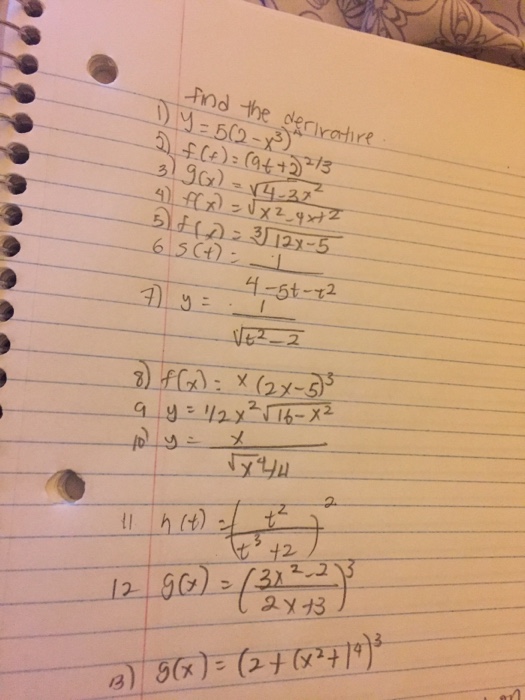 find the derivative.
1) y = 5(2-x³)⁴
2) f(t) = (9t+2)^2/3
3) g(x) = √4-3x²
4) f(x) = √x²-4x+2
5) f(x) = ³√12x-5
6 s(t) = 1
4-5t-t²
7) y = 1
√t²-2
8) f(x) = x(2x-5)³
9 y = 1/2x²√16-x²
10) y = x
√x⁴+4
11 h(t) = (t²
t³+2)²
12 g(x) = (3x²-2
2x+3)³
13) g(x) = (2+(x²+1⁴)³